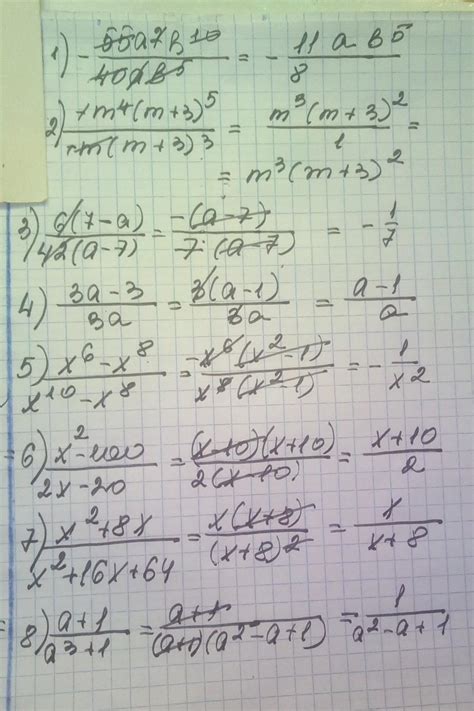 1) - 55a7b10 / 40ab5 = - 11ab5 / 8
2) -m4(m+3)5 / -m(m+3)3 = m3(m+3)2 / 1 =
= m3(m+3)2
3) 6(7-a) / 42(a-7) = -(a-7) / 7(a-7) = - 1/7
4) 3a-3 / 3a = 3(a-1) / 3a = a-1 / a
5) x6-x8 / x10-x8 = -x6(x2-1) / x8(x2-1) = - 1 / x2
= 6) x2-100 / 2x-20 = (x-10)(x+10) / 2(x-10) = x+10 / 2
7) x2+8x / x2+16x+64 = x(x+8) / (x+8)2 = x / x+8
= 8) a+1 / a3+1 = a+1 / (a+1)(a2-a+1) = 1 / a2-a+1